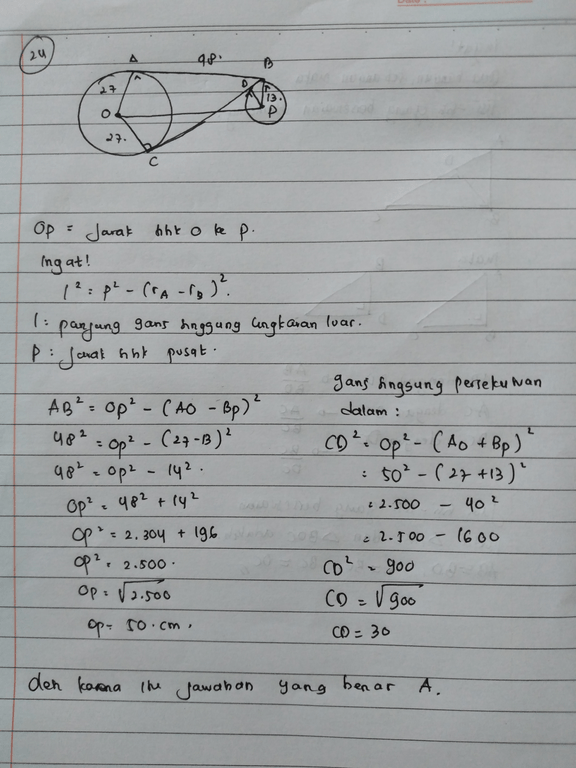 24
A 48. B
27 D 13.
O P
27.
C
Op = Jarak titik O ke p.
Ingat!
l² = p² - (rA - rB)².
l : panjang garis singgung lingkaran luar.
p : jarak titik pusat.
AB² = Op² - (AO - Bp)²
48² = Op² - (27-13)²
48² = Op² - 14².
Op² = 48² + 14²
Op² = 2.304 + 196
Op² = 2.500.
Op = √2.500
Op = 50.cm.
garis singgung persekutuan
dalam :
CD² = Op² - (AO + Bp)²
= 50² - (27 + 13)²
= 2.500 - 40²
= 2.500 - 1600
CD² = 900
CD = √900
CD = 30
karena itu jawaban yang benar A.